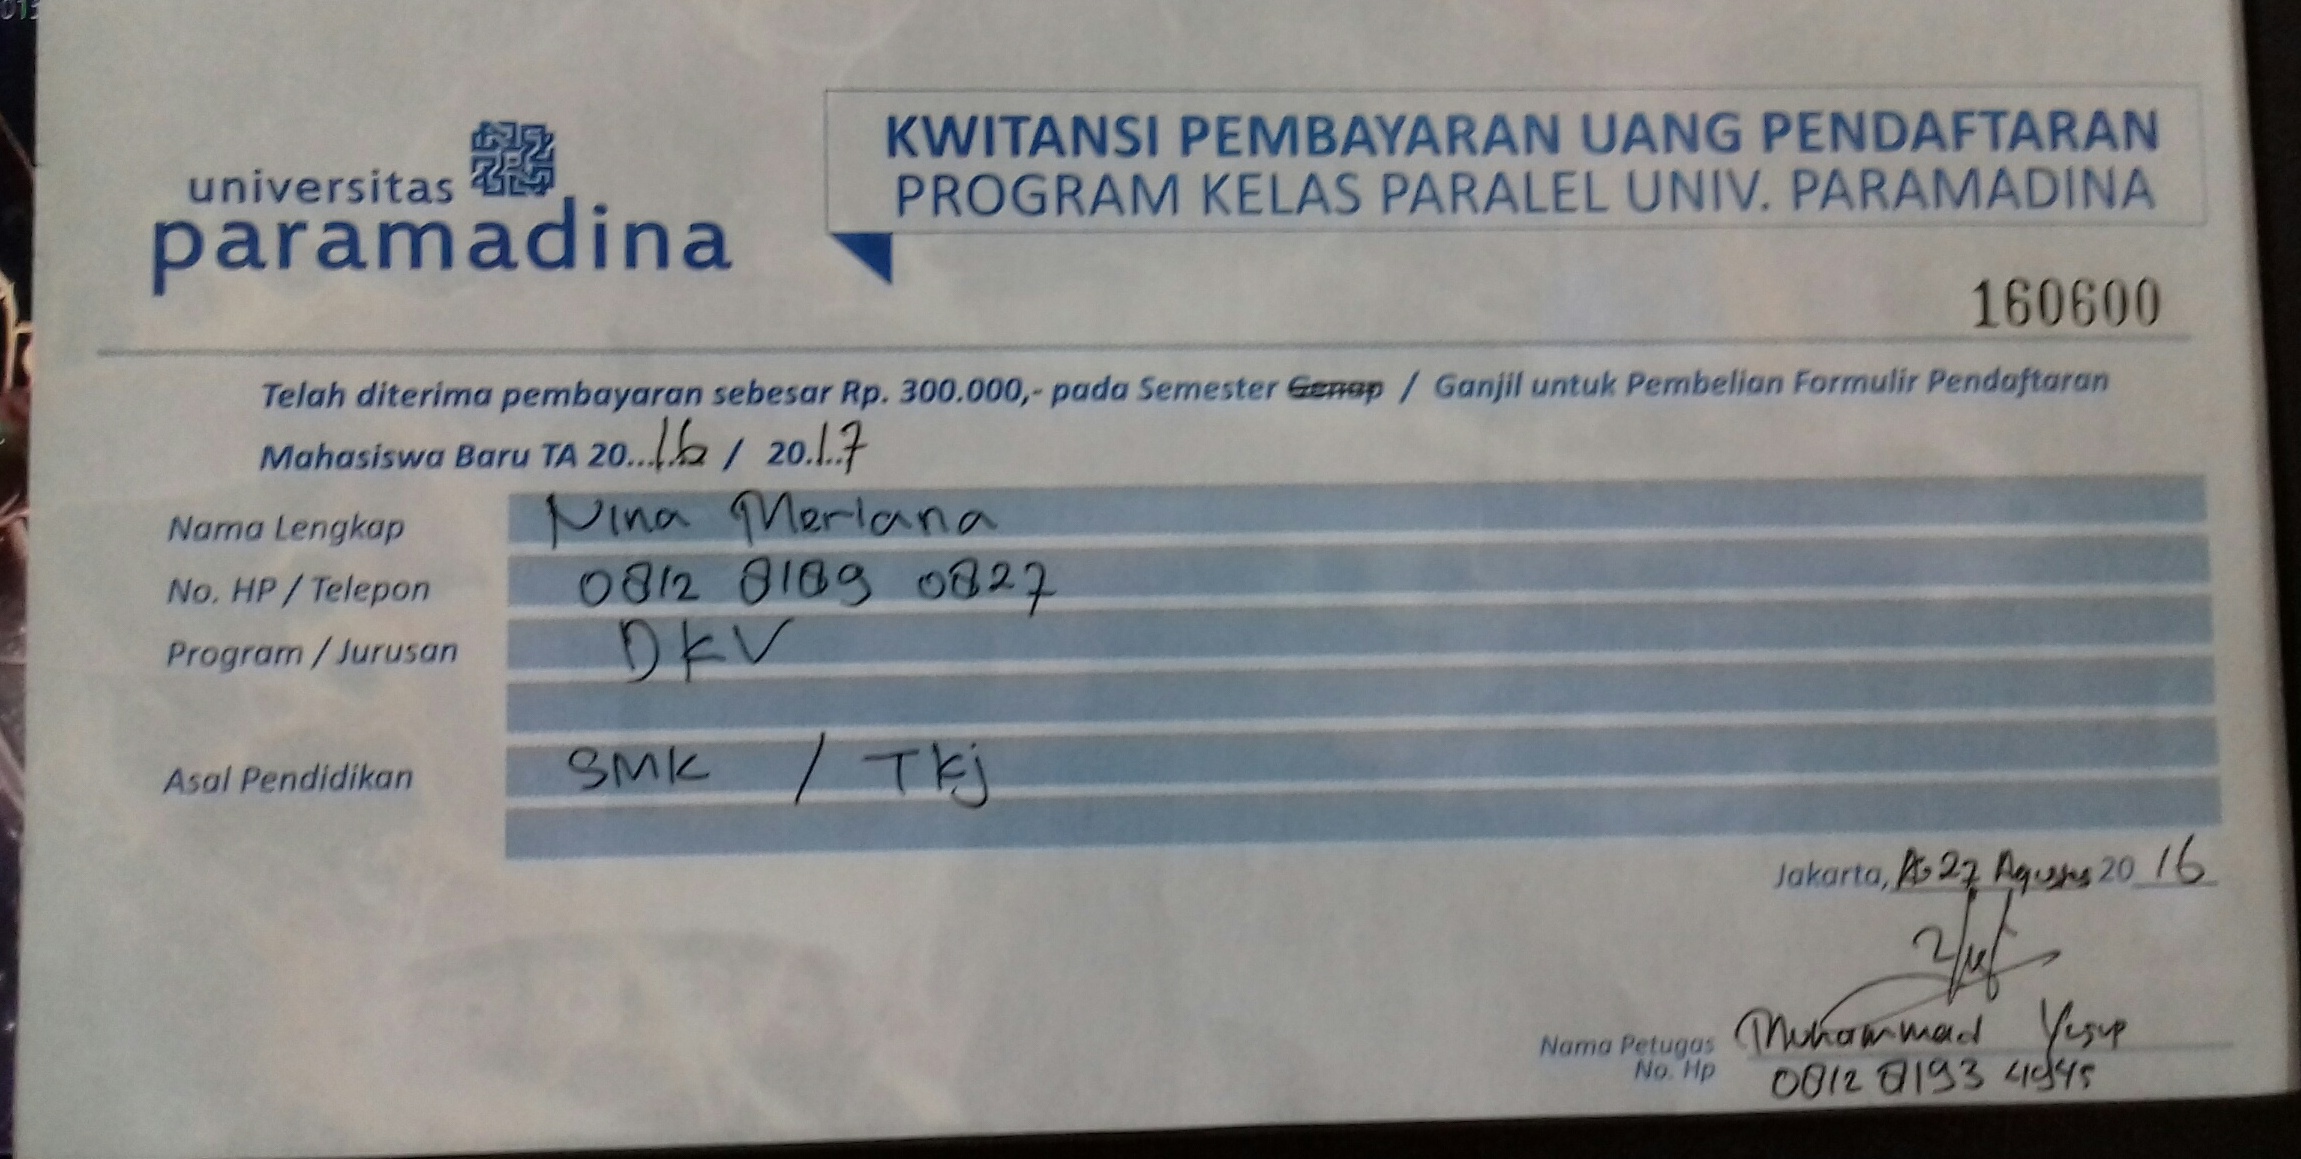 universitas
paramadina
KWITANSI PEMBAYARAN UANG PENDAFTARAN
PROGRAM KELAS PARALEL UNIV. PARAMADINA
160600
Telah diterima pembayaran sebesar Rp. 300.000,- pada Semester Genap / Ganjil untuk Pembelian Formulir Pendaftaran
Mahasiswa Baru TA 20...16 / 20.17
Nama Lengkap Nina Merlana
No. HP / Telepon 0812 8189 0827
Program / Jurusan DKV
Asal Pendidikan SMK / Tkj
Jakarta, 27 Agustus 20 16
Nama Petugas Muhammad Yusup
No. Hp 0812 8193 4945